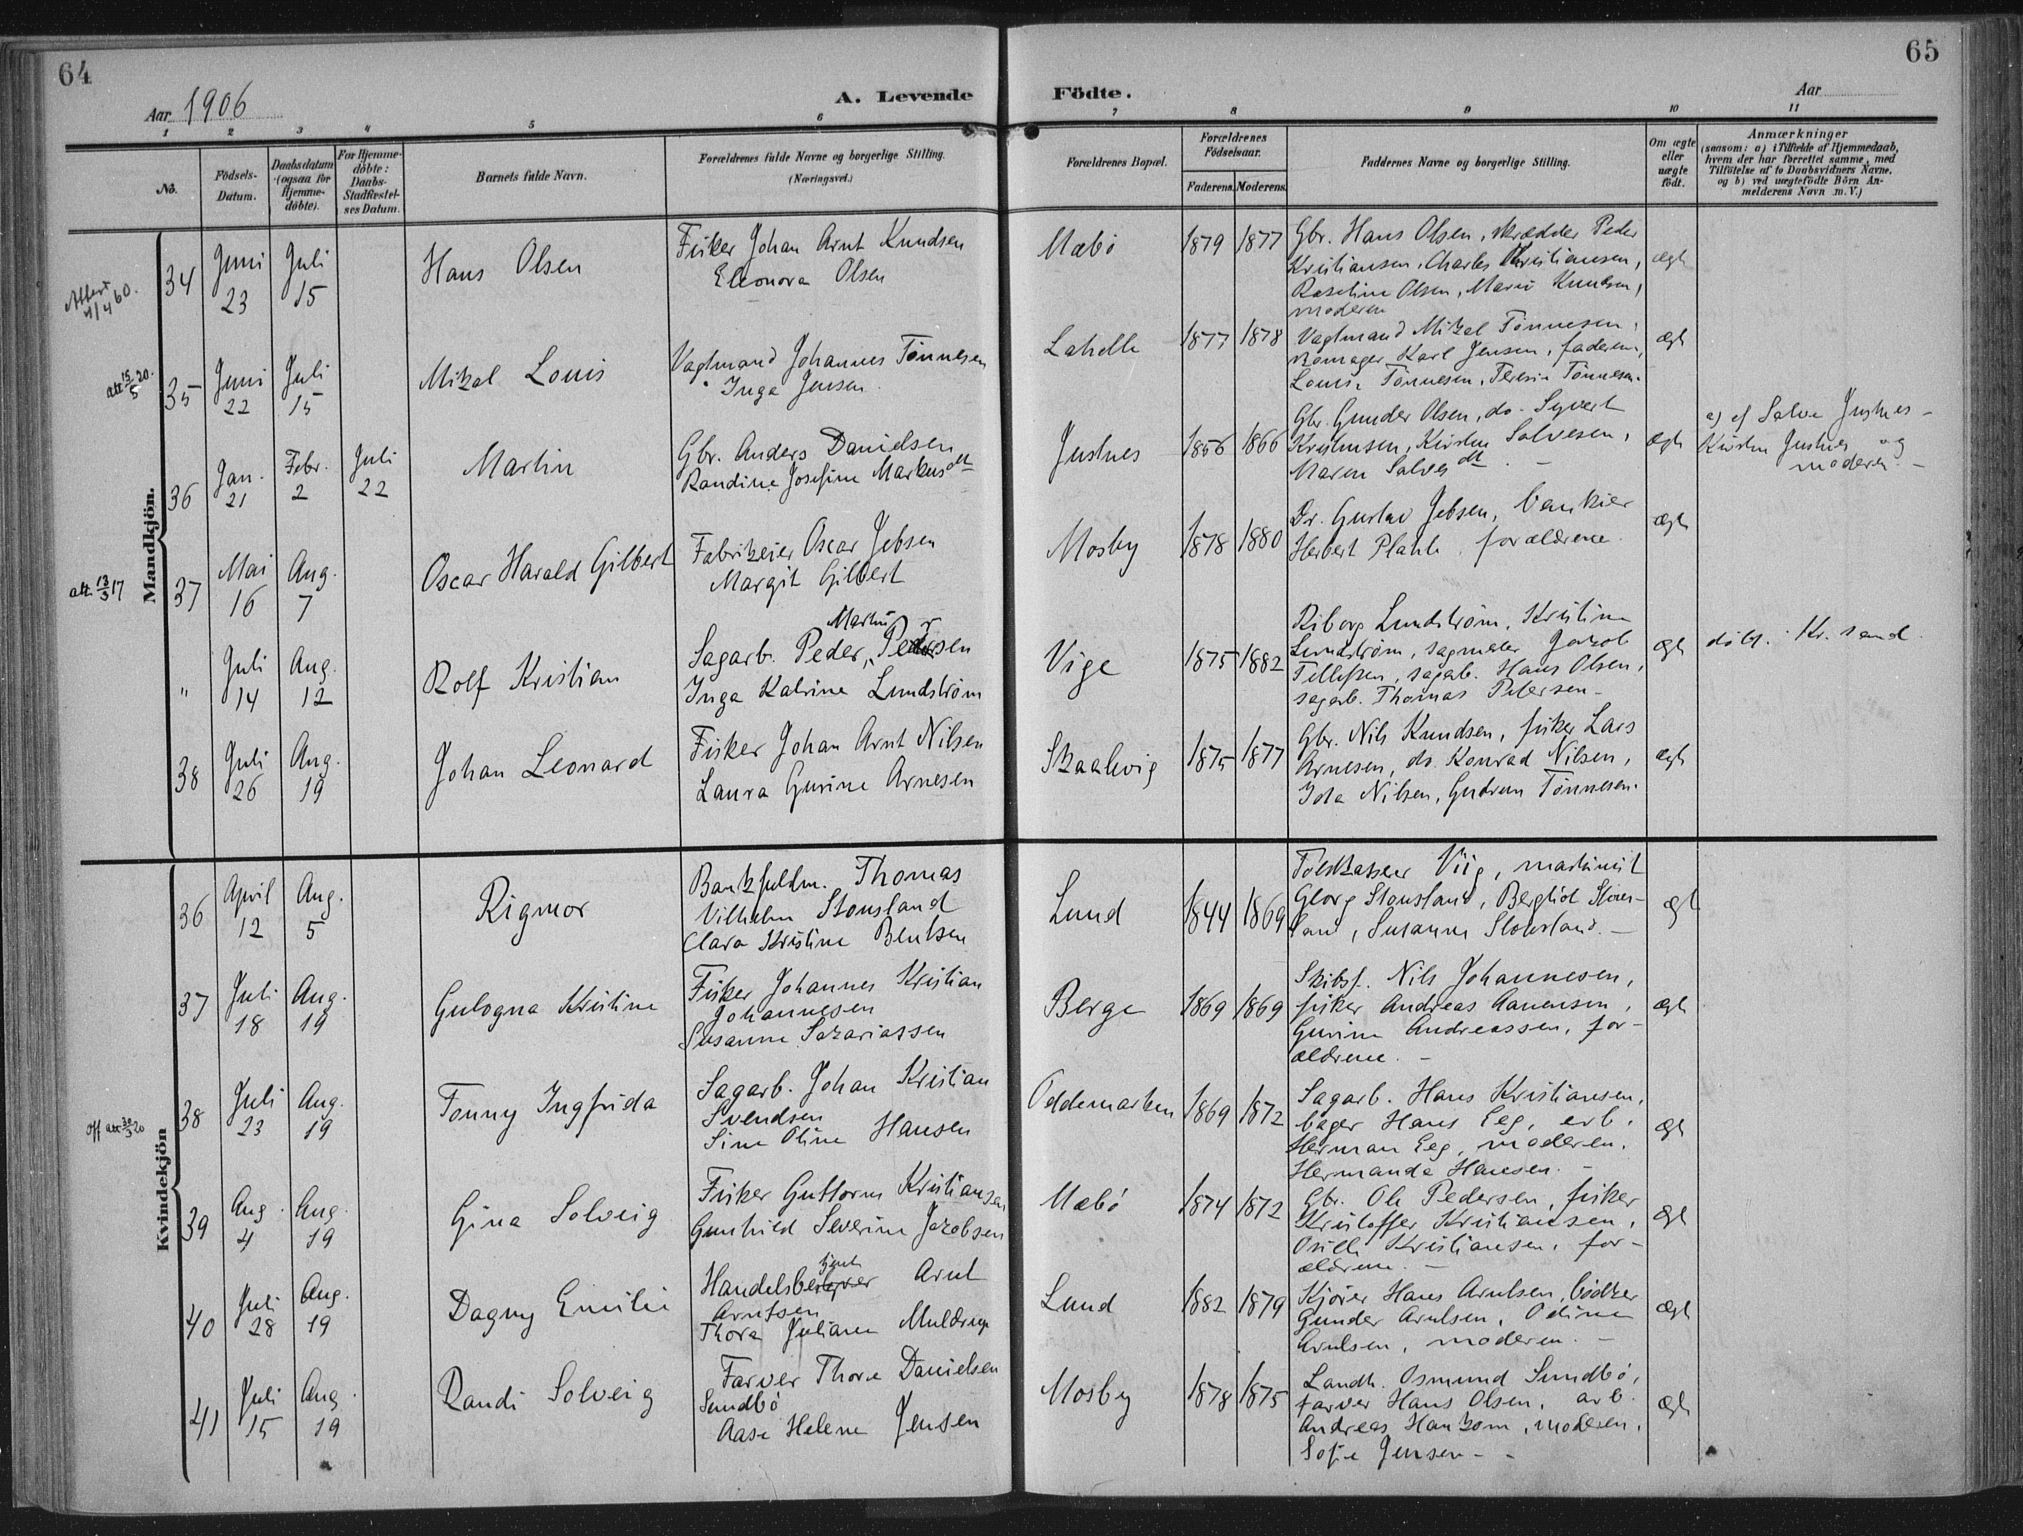 64
65
Aar 1906
A. Levende
Födte.
Aar
1 2 3 4 5 6 7 8 9 10 11
No.
Födsels-
Datum.
Daabsdatum
(ogsaa for
Hjemme-
döbte).
For Hjemme-
döbte:
Daabs-
Stadfæstel-
ses Datum.
Barnets fulde Navn.
Forældrenes fulde Navne og borgerlige Stilling.
(Næringsvei.)
Forældrenes Bopæl.
Forældrenes
Födselsaar.
Faderens. Moderens.
Faddernes Navne og borgerlige Stilling.
Om ægte
eller
uægte
født.
Anmærkninger
(saasom: a) i Tilfælde af Hjemmedaab,
hvem der har forrettet samme, med
Tilföielse af to Daabsvidners Navne,
og b) ved uægtefödte Börn An-
melderens Navn m. V.)
Mandkjön.
34
Juni
23
Juli
15
Hans Olsen
Fisker Johan Arnt Knudsen
Eleonora Olsen
Mæbö
1879
1877
Gbr. Hans Olsen, skrædder Peder
Kristiansen, Charles Kristiansen,
Roseline Olsen, Marie Knudsen,
moderen
ægte
Attest
4/4 60.
35
Juni
22
Juli
15
Mikal Louis
Vagtmand Johannes Tönnesen
Inga Jensen
1877
1878
Vagtmand Mikal Tönnesen,
Karl Jensen, faderen,
Louise Tönnesen, Teresie Tönnesen.
ægt
att 15/5 20.
36
Jan.
21
Febr.
2
Juli
22
Martin
Gbr. Anders Danielsen
Randine Josefine Markusdtt
Justnes
1856
1866
Gbr. Gunder Olsen, do. Syvert
Kristensen, Kirsten Salvesen,
Maren Salvesdtt. –
ægte
a) af Salve Justnes –
Kirsten Justnes og
moderen. –
37
Mai
16
Aug.
7
Oscar Harald Gilbert
Fabrikeier Oscar Jebsen
Margit Gilbert
Mosby
1878
1880
Dr. Gustav Jebsen, bankier
Herbert Plahte, forældrene.
ægte
att. 13/3 17
"
Juli
14
Aug.
12
Rolf Kristian
Martin
Sagarb. Peder, Pedersen
Inga Katrine Lundström
Vige
1875
1882
Riborg Lundström, Kristine
Lundström, sagmster Jakob
Tellefsen, sagarb. Hans Olsen,
sagarb. Thomas Petersen –
ægt
döbt i Kr.sand.
38
Juli
26
Aug.
19
Johan Leonard
Fisker Johan Arnt Nilsen
Laura Gurine Arnesen
Skaalevig
1875
1877
Gbr. Nils Knudsen, fisker Lars
Arnesen, do. Konrad Nilsen,
Ida Nilsen, Gudrun Tönnesen.
ægt
Kvindekjön
36
April
12
Aug.
5
Rigmor
Bankfuldm. Thomas
Vilhelm Stousland
Clara Kristine Bentsen
Lund
1844
1869
Toldkasserer Viig, maskinist
Georg Stousland, Bergliot Stous-
land, Susanne Stousland. –
ægt
37
Juli
18
Aug.
19
Gulogna Kristine
Fisker Johannes Kristian
Johannesen
Susanne Sakariassen
Berge
1869
1869
Skibsf. Nils Johannesen,
fisker Andreas Aanensen,
Gurine Andreassen, for-
ældrene. –
ægt
38
Juli
23
Aug.
19
Tonny Ingfrida
Sagarb. Johan Kristian
Svendsen
Sine Oline Hansen
Oddemarken
1869
1872
Sagarb. Hans Kristiansen,
bager Hans Eeg, arb.
Herman Eeg, moderen,
Hermanda Hansen. –
ægt
39
Aug.
4
Aug.
19
Gina Solveig
Fisker Guttorm Kristiansen
Gunhild Severine Jakobsen
Mæbö
1874
1872
Gbr. Ole Pedersen, fisker
Kristoffer Kristiansen,
Osille Kristiansen, for-
ældrene. –
ægt
40
Juli
28
Aug.
19
Dagny Emilie
Handelsbetjent Arnt
Arntsen
Thora Juliane Muldrup
Lund
1882
1879
Kjörer Hans Arntsen, bödker
Gunder Arntsen, Odine
Arntsen, moderen. –
ægt
41
Juli
15
Aug.
19
Randi Solveig
Farver Thore Danielsen
Sundbö
Aase Helene Jensen
Mosby
1878
1875
Landh. Osmund Sundbö,
farver Hans Olsen, arb.
Andreas Hankom, moderen,
Sofie Jensen – –
ægt